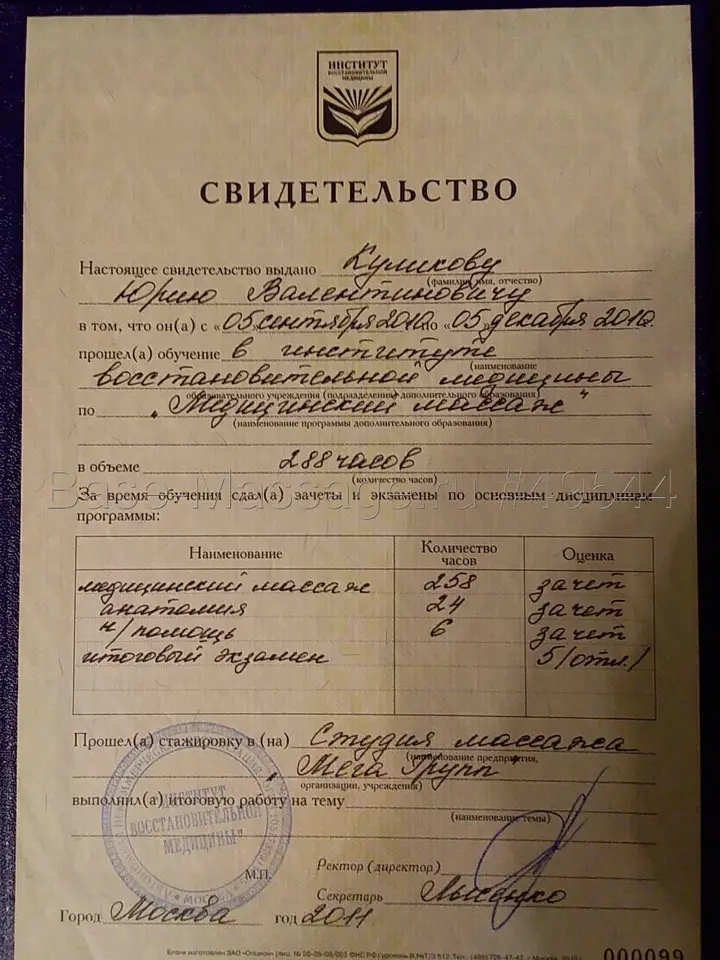 ИНСТИТУТ
ВОССТАНОВИТЕЛЬНОЙ
МЕДИЦИНЫ
СВИДЕТЕЛЬСТВО
Настоящее свидетельство выдано Куликову
(фамилия, имя, отчество)
Юрию Валентиновичу
в том, что он(а) с «05» сентября 2010 по «05» декабря 2010.
прошел(а) обучение в институте
(наименование
восстановительной медицины
образовательного учреждения (подразделения) дополнительного образования)
по „Медицинский массаж“
(наименование программы дополнительного образования)
в объеме 288 часов
(количество часов)
Base-Massage.ru #49644
За время обучения сдал(а) зачеты и экзамены по основным дисциплинам
программы:
Наименование Количество часов Оценка
медицинский массаж 258 зачет
анатомия 24 зачет
н/помощь 6 зачет
итоговый экзамен 5/отл./
Прошел(а) стажировку в (на) Студия массажа
(наименование предприятия,
„Мега Групп“
организации, учреждения)
выполнил(а) итоговую работу на тему
(наименование темы)
ИНСТИТУТ
ВОССТАНОВИТЕЛЬНОЙ
МЕДИЦИНЫ"
МОСКВА
М.П.
Ректор (директор)
Секретарь Лысенко
Город Москва год 2011
Бланк изготовлен ЗАО «Опцион»
000099